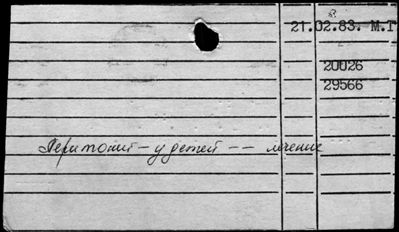 21.02.83. М.Т
20026
29566
Перитонит – у детей – – лечение